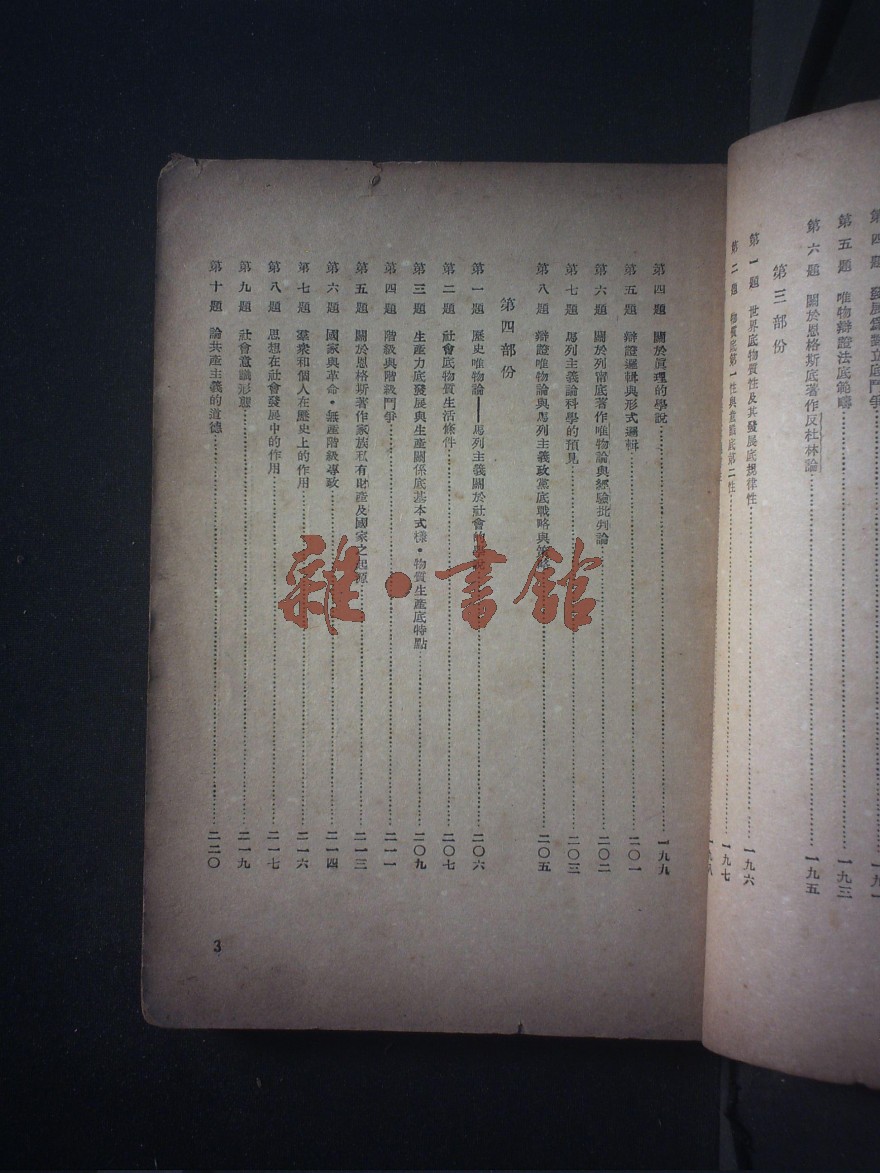 第五題 唯物辯證法底範疇……一九三
第六題 關於恩格斯底著作反杜林論……一九五
第三部份
第一題 世界底物質性及其發展底規律性……一九六
第二題 物質底第一性與意識底第二性……一九七
第四題 關於眞理的學說……一九九
第五題 辯證邏輯與形式邏輯……二〇一
第六題 關於列甯底著作唯物論與經驗批判論……二〇二
第七題 馬列主義論科學的預見……二〇三
第八題 辯證唯物論與馬列主義政黨底戰略與策略……二〇五
第四部份
第一題 歷史唯物論——馬列主義關於社會的學說……二〇六
第二題 社會底物質生活條件……二〇七
第三題 生產力底發展與生產關係底基本式樣・物質生產底特點……二〇九
第四題 階級與階級鬥爭……二一一
第五題 關於恩格斯著作家族私有財產及國家之起源……二一三
第六題 國家與革命・無產階級專政……二一四
第七題 羣衆和個人在歷史上的作用……二一六
第八題 思想在社會發展中的作用……二一七
第九題 社會意識形態……二一九
第十題 論共產主義的道德……二二〇
3
雜・書館